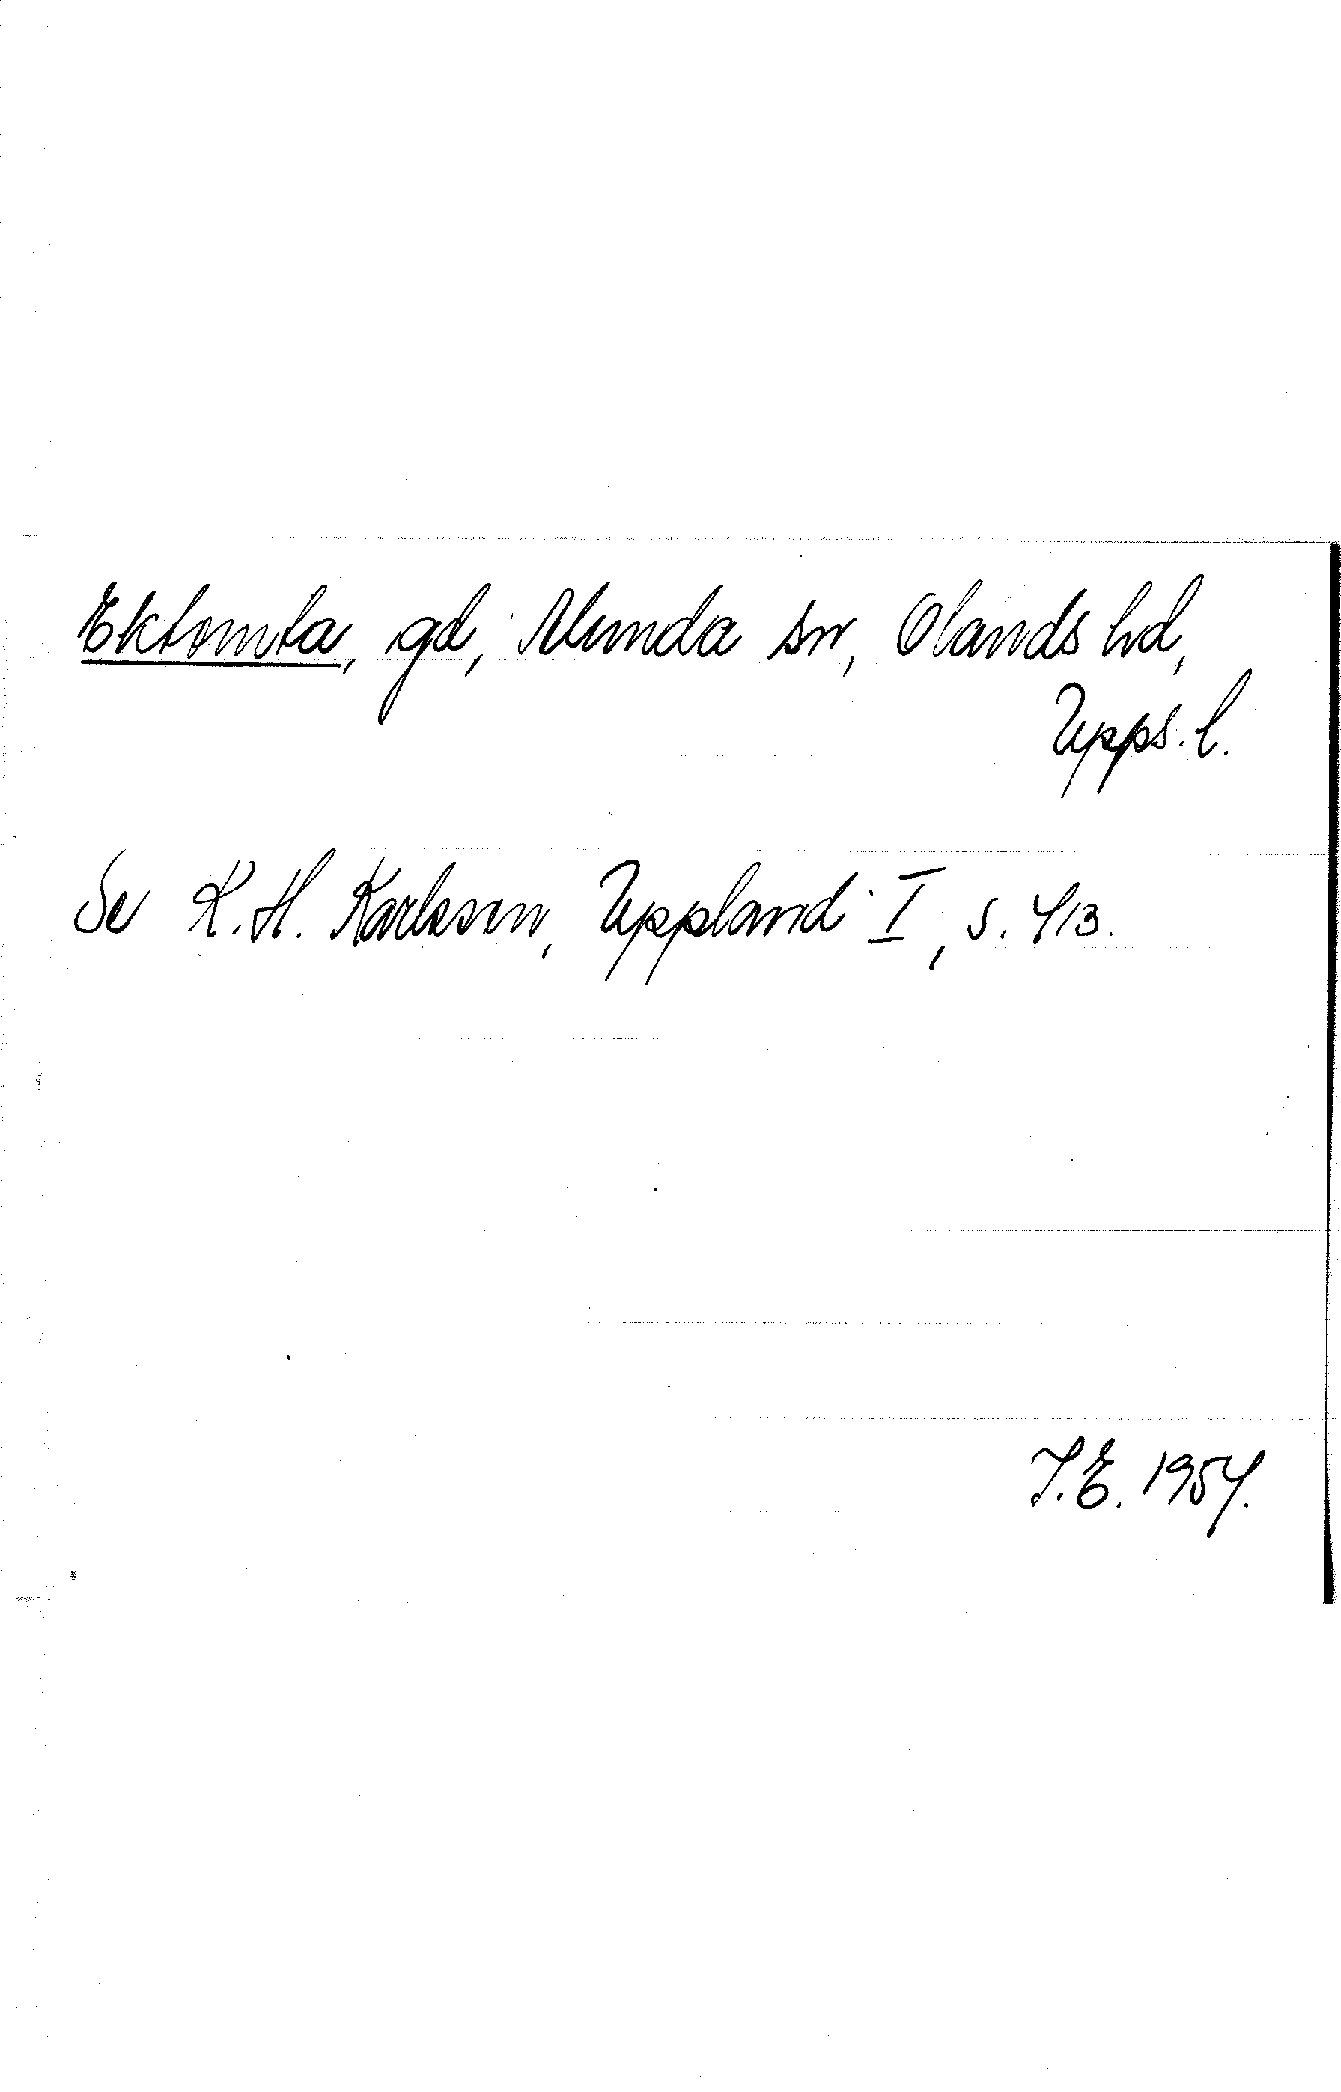 Ektomta, gd, Alunda sn, Olands hd,
Upps. l.
Se K. H. Karlsson, Uppland I, s. 413.
I. E. 1954.